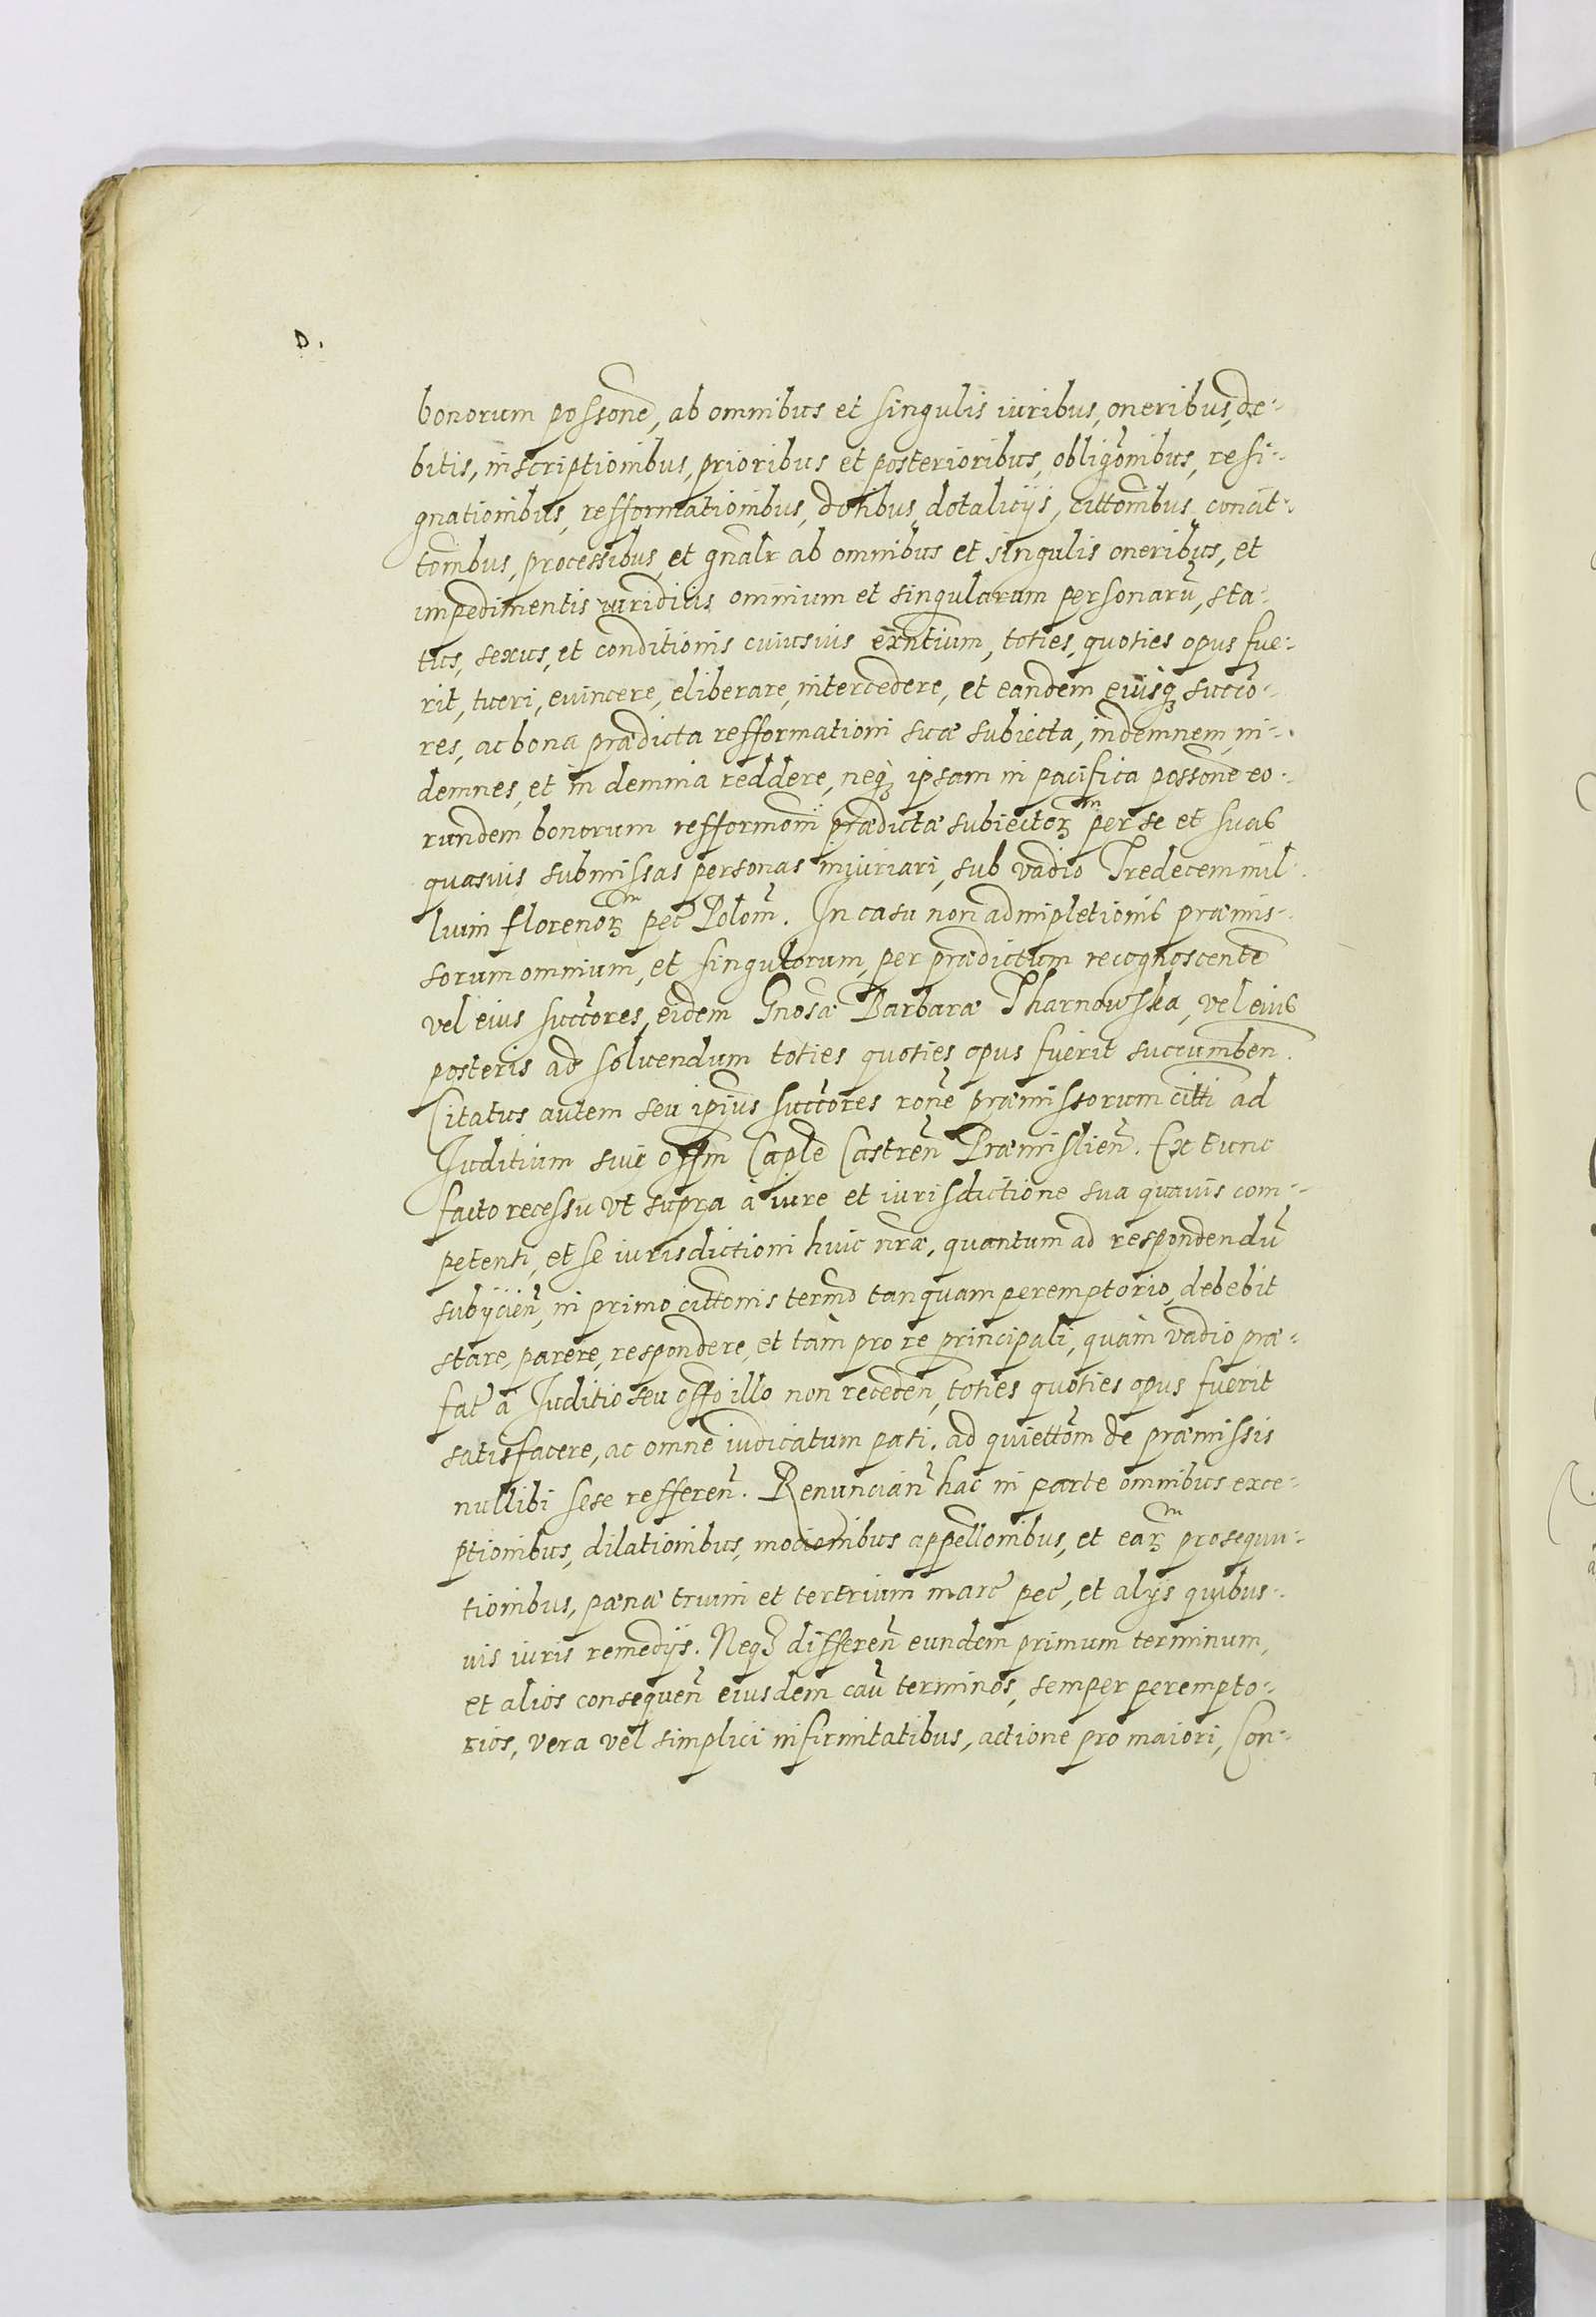 D.
bonorum possone, ab omnibus et singulis iuribus, oneribus, de-
bitis, inscriptionibus, prioribus et posterioribus, obligonibus, resi-
gnationibus, refformationibus, dotibus, dotalicijs, cittonibus, concit-
tombus, processibus, et gnalr ab omnibus et singulis oneribus, et
impedimentis iuridicis omnium et singularum personarū, sta-
tus, sexus, et conditionis cuiusuis exntium, toties, quoties opus fue-
rit, tueri, euincere, eliberare, intercedere, et eandem eiusq₃ succo-
res, ac bona prædicta refformationi suæ subiecta, indemnem, in-
demnes, et in demnia reddere, neq₃ ipsam in pacifica possone eo-
rundem bonorum refformoni prædictæ subiectorꝝ per se et suas
quasuis submissas personas iniuriari, sub vadio Tredecem mil-
lium florenorꝝ pec Polon̄. In casu non adimpletionis præmis-
sorum omnium, et singulorum, per prædictum recognoscente
vel eius succores, eidem Gnosæ Barbaræ Tharnowska, vel eius
posteris ad soluendum toties quoties opus fuerit succumben.
Citatus autem seu ipius succores rone præmissorum citti ad
Iuditium siue offm Caple Castren̄ Præmislien̄. Ex tunc
facto recessu vt supra à iure et iurisdictione sua quauis com-
petenti, et se iurisdictioni huic nræ, quantum ad respondendū
subijcien̄, in primo cittonis termo tanquam peremptorio, debebit
stare, parere, respondere, et tàm pro re principali, quàm vadio præ-
fat à Iuditio seu offo illo non receden, toties quoties opus fuerit
satisfacere, ac omne iudicatum pati, ad quiettom de præmissis
nullibi sese refferen̄. Renuncian̄ hac in parte omnibus exce-
ptionibus, dilationibus, motionibus appellonibus, et earꝝ prosequu-
tionibus, pænæ trium et tertrium marc pec, et alijs quibus-
uis iuris remedijs. Neq₃ differen̄ eundem primum terminum,
et alios consequen̄ eiusdem caū terminos, semper perempto-
rios, vera vel simplici infirmitatibus, actione pro maiori, Con-